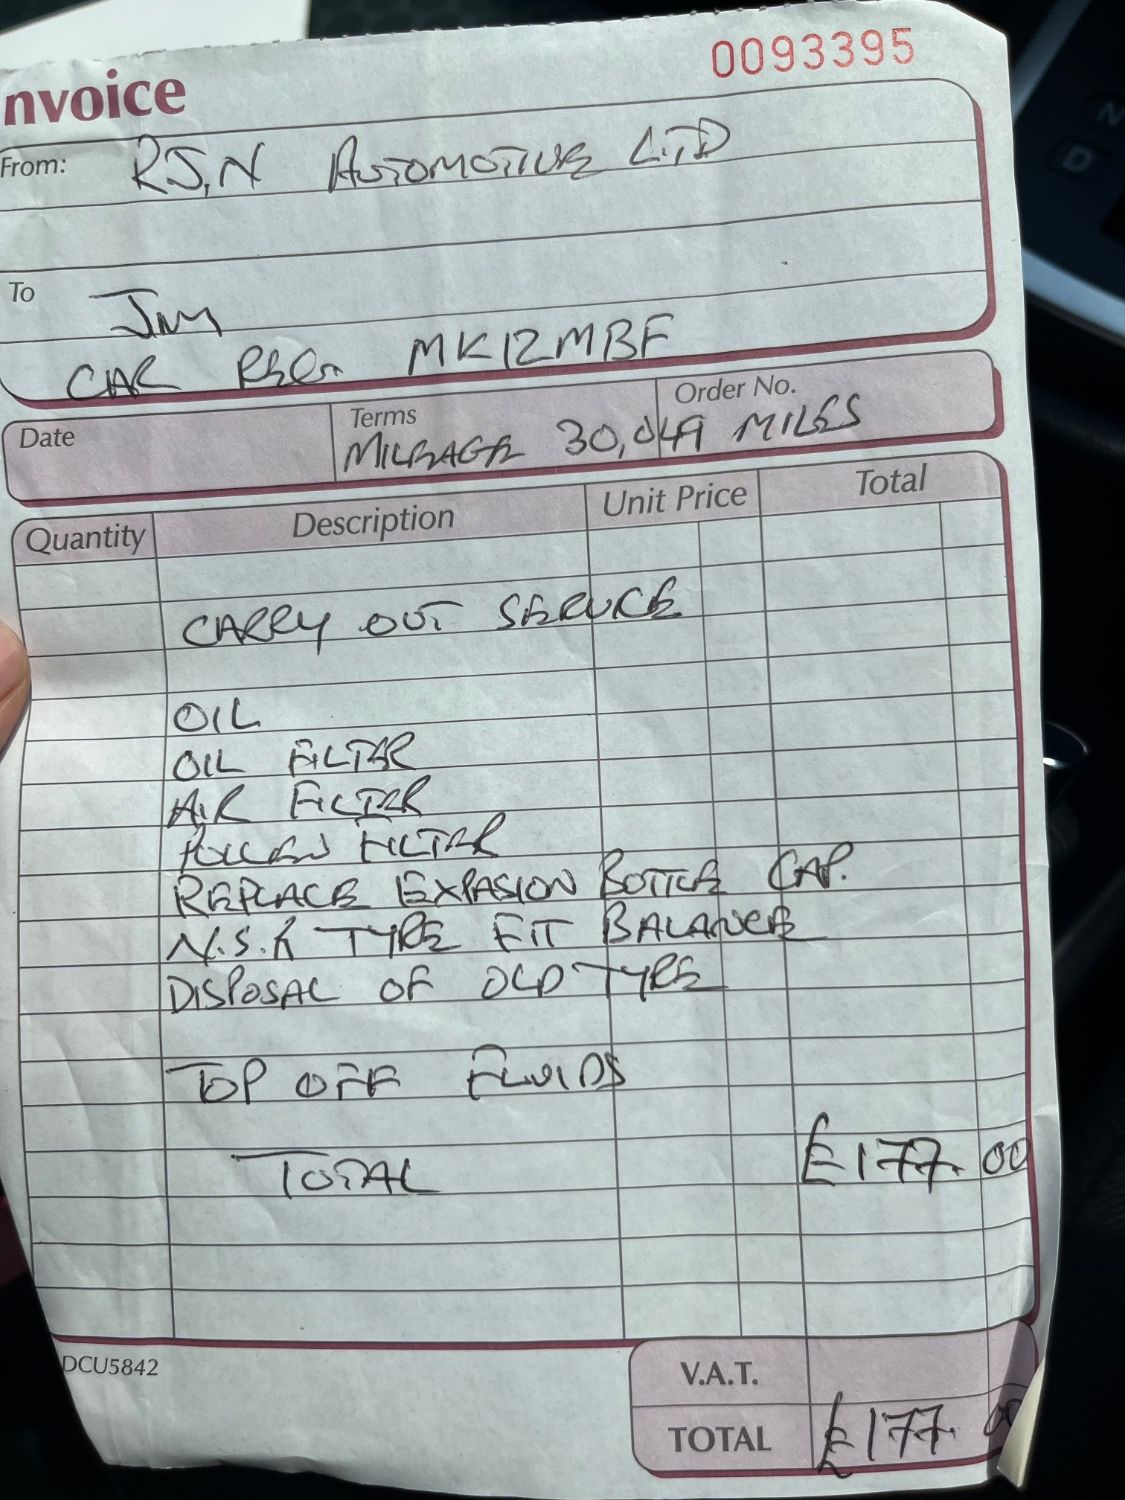 0093395
nvoice
From: RJ,N AUTOMOTIVE LTD
To
JIM
CAR REG MK12MBF
Date
Terms
Order No.
MILEAGE 30,049 MILES
Quantity Description Unit Price Total
CARRY OUT SERVICE
OIL
OIL FILTER
AIR FILTER
POLLEN FILTER
REPLACE EXPASION BOTTLE CAP.
N.S.R TYRE FIT BALANCE
DISPOSAL OF OLD TYRE
TOP OFF FLUIDS
TOTAL £177.00
DCU5842
V.A.T.
TOTAL £177.00
D
N